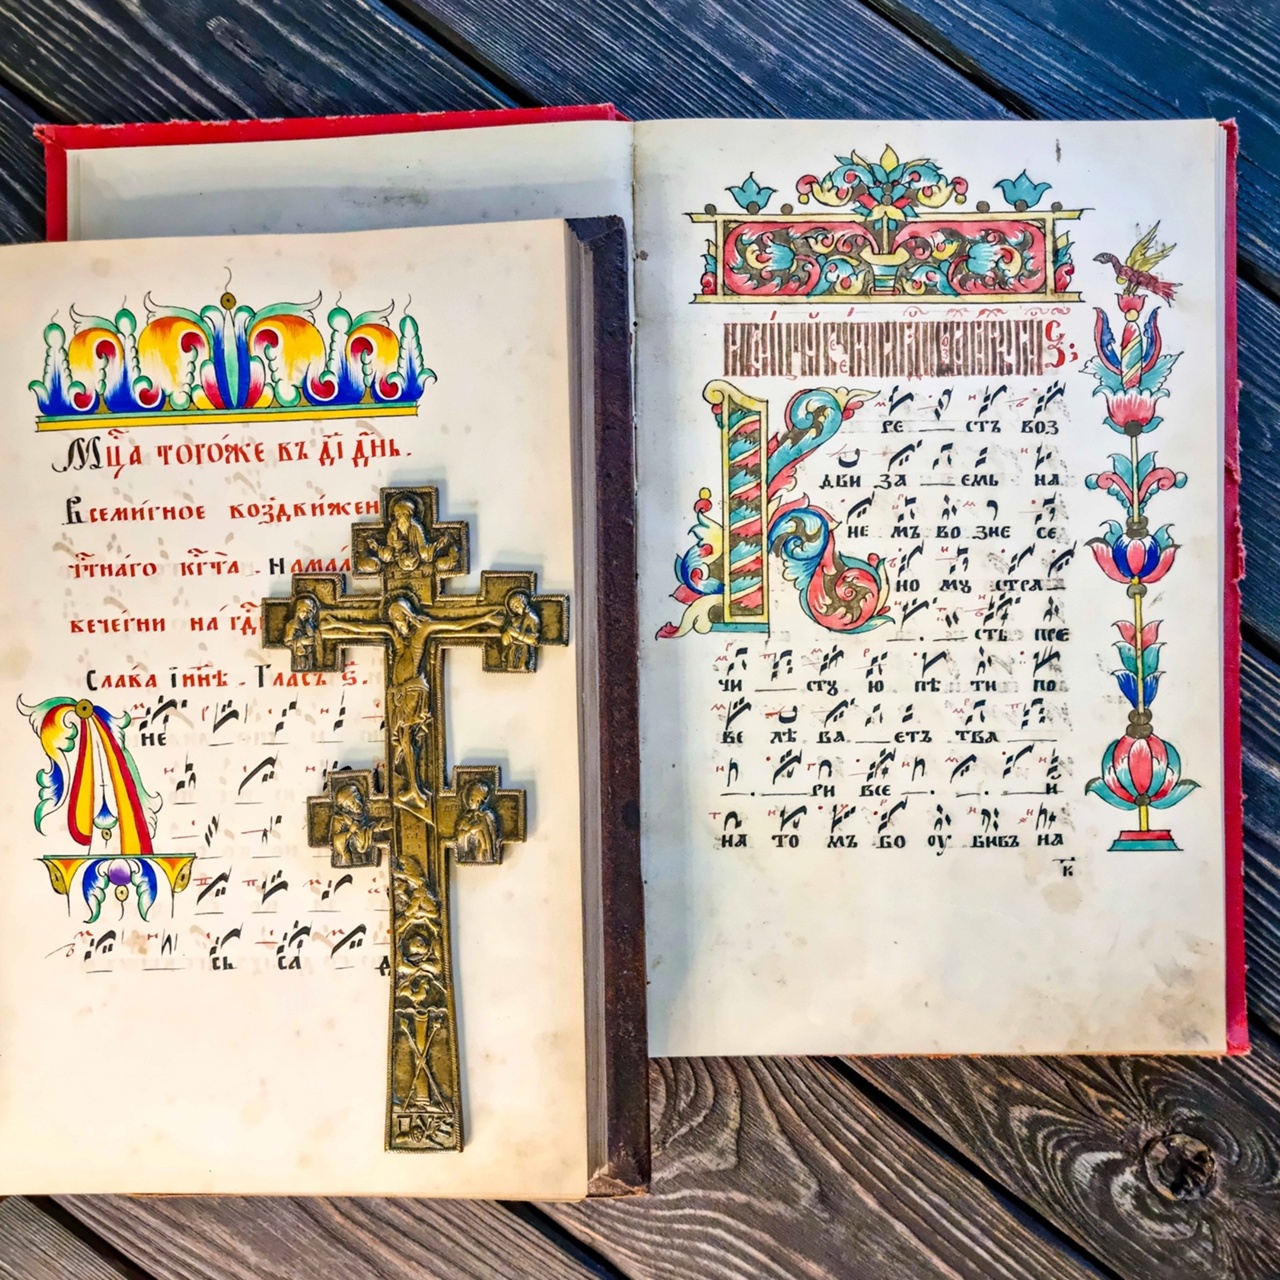 Мц҃а тогѡ́же въ д҃і дн҃ь.
Всеми́рное воздви́жен
ч҃тна́гѡ кр҃та̀. На мал
вече́рни на́ гд҃
Слава і нн҃ѣ. Гласъ ѕ҃.
НЕ
сь са д
ре сть воз
дви за емь на
не мъ во зне се
но му стра
сть пре
чи сту ю пѣ ти по
ве лѣ ва етъ тва
ри все и
на то мъ бо оу бивъ на